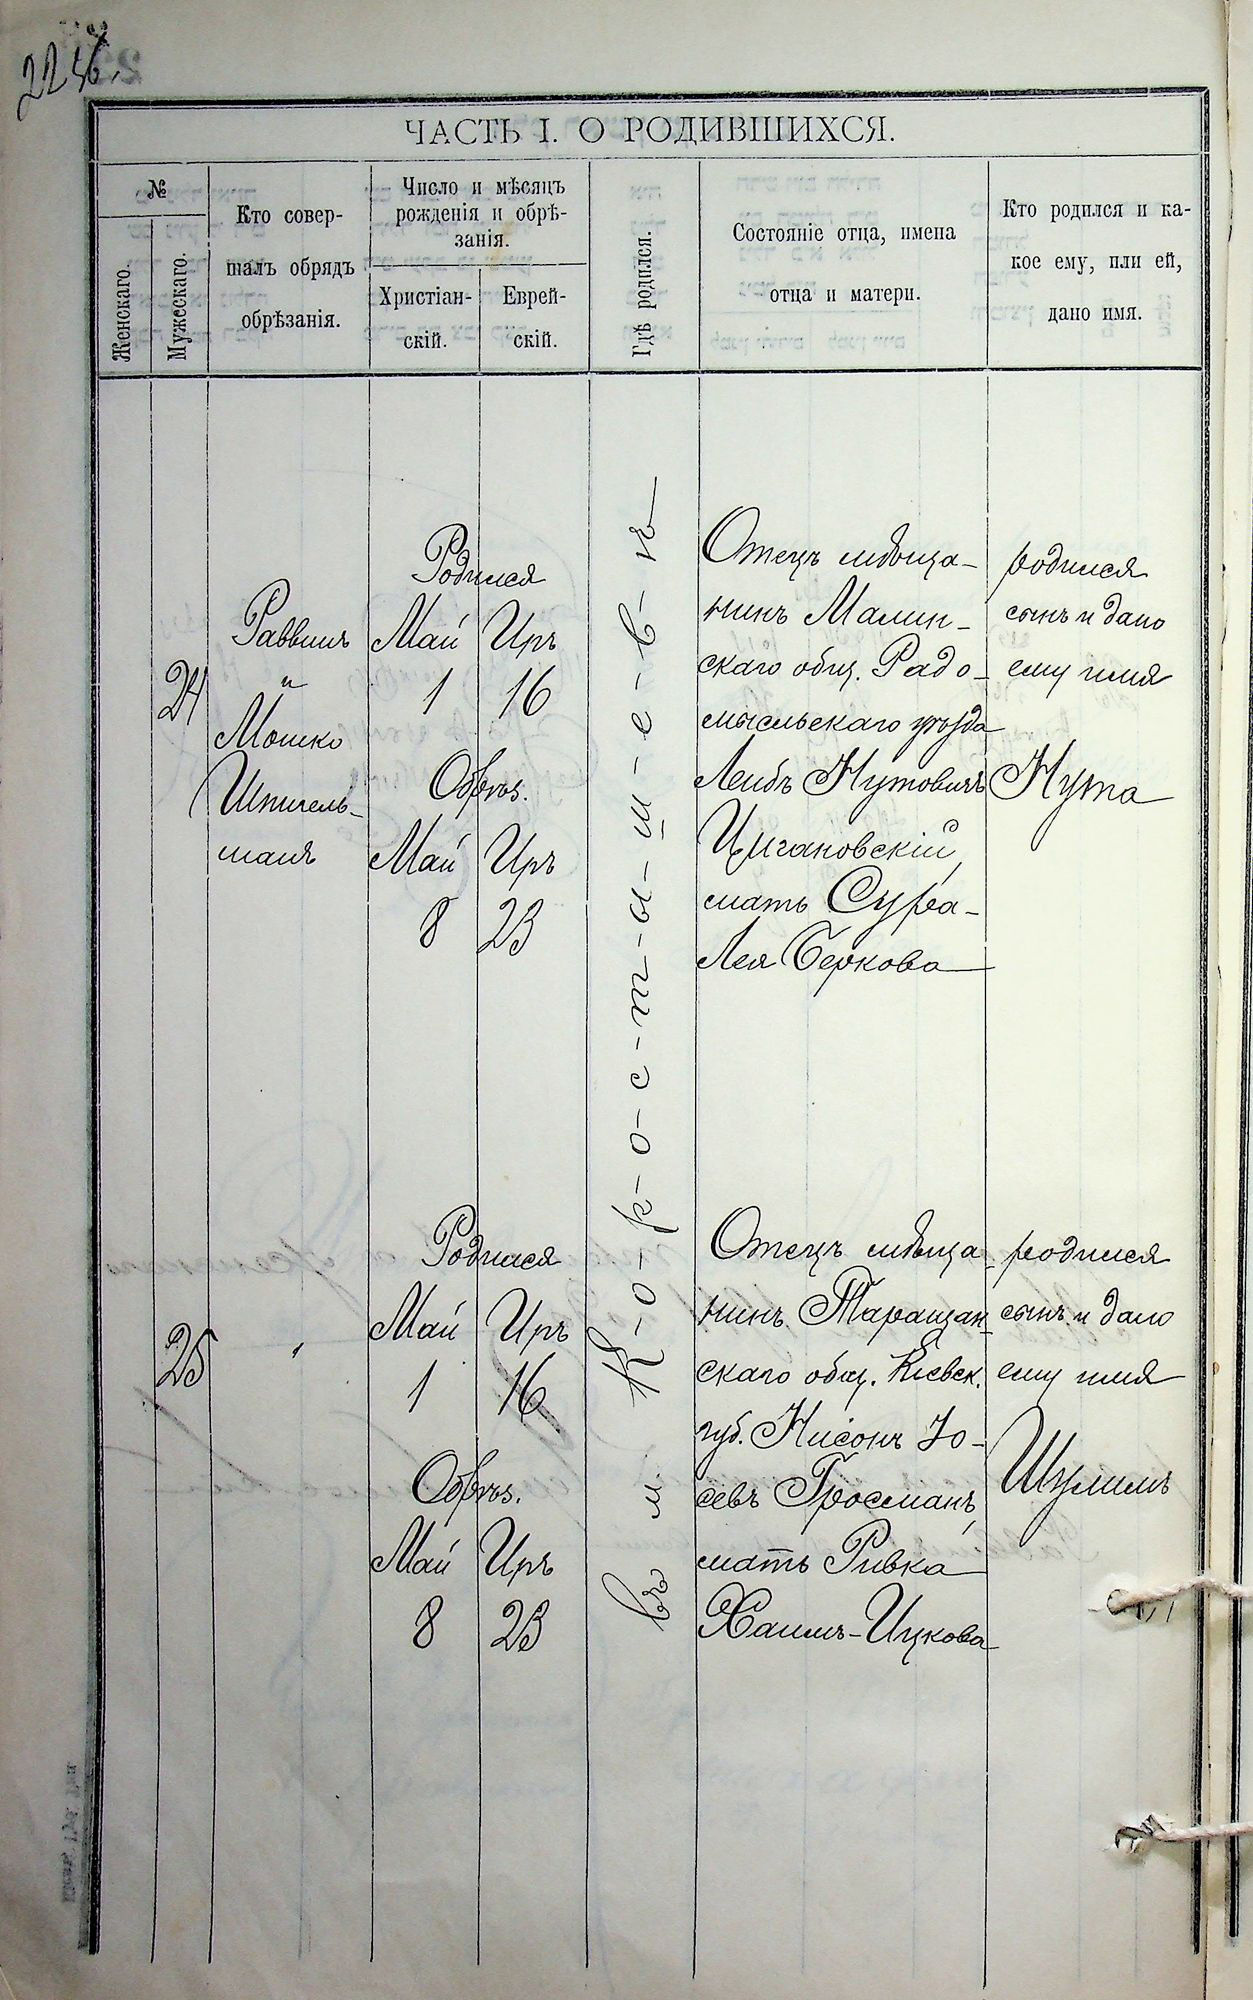 ЧАСТЬ I. О РОДИВШИХСЯ.
№
Женскаго.
Мужескаго.
Кто совер-
шалъ обрядъ
обрѣзанія.
Число и мѣсяцъ
рожденія и обрѣ-
занія.
Христіан-
скій.
Еврей-
скій.
Гдѣ родился.
Состояніе отца, имена
отца и матери.
Кто родился и ка-
кое ему, или ей,
дано имя.
24
Раввинъ
"
Мошко
Шпигель-
манъ
Родился
Май Иръ
1 16
Обрѣз.
Май Иръ
8 23
въ м. К-о-р-о-с-т-ы-ш-е-в-ѣ
Отецъ мѣща-
нинъ Малин-
скаго общ. Радо-
мысльскаго уѣзда
Лейбъ Нутовичъ
Цигановскій,
мать Сура-
Лея Беркова
родился
сынъ и дано
ему имя
Нута
25
"
Родился
Май Иръ
1 16
Обрѣз.
Май Иръ
8 23
Отецъ мѣща-
нинъ Таращан-
скаго общ. Кіевск.
губ. Нисонъ Іо-
севъ Гросманъ,
мать Ривка
Хаимъ-Ицкова
родился
сынъ и дано
ему имя
Шулимъ